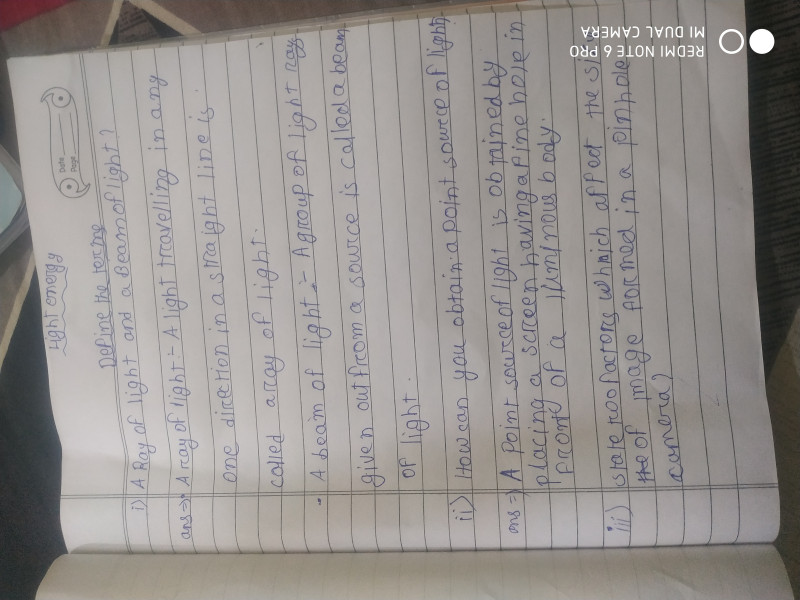 Light energy
Date
Page
Define the terms
i) A Ray of light and a Beam of light?
ans => A ray of light :- A light travelling in any
one direction in a straight line is
called a ray of light.
A beam of light :- A group of light ray
given out from a source is called a beam
of light.
ii) How can you obtain a point source of light.
ans => A Point source of light is obtained by
placing a screen having a fine hole in
front of a luminous body.
iii) state two factors which affect the si
of image formed in a pinhole
camera?
REDMI NOTE 6 PRO
MI DUAL CAMERA